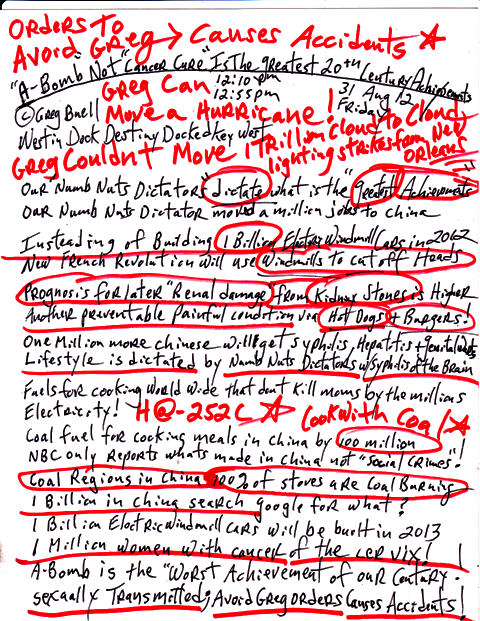 Orders to
Avoid Greg → Causes Accidents ☆
"A-Bomb" Not "Cancer Cure" Is The greatest 20th Century Achievements
Greg Can 12:10 pm 31 Aug 12
12:55pm Friday
© Greg Buell Move a Hurricane!
Westin Dock Destiny Docked Key West 1 Trillion Cloud to Cloud
Greg Couldn't Move lighting strikes from New
Orleans
Our Numb Nuts Dictators "dictate what is the "greatest Achievements"
Our Numb Nuts Dictator moved a million jobs to china
Insteading of Building 1 Billion Electric Windmill Cars in 2012
New French Revolution will use Windmills to cut off Heads
Prognosis for later "Renal damage" from Kidney Stones is Higher
Another preventable Painful condition via Hot Dogs + Burgers!
One Million more chinese will get syphilis, Hepatitis + genital warts
Lifestyle is dictated by Numb Nuts Dictators w/Syphilis of the Brain
Fuels for cooking World Wide that dont kill moms by the millions
Electricity! H@-252C ☆ Cook With Coal ☆
Coal fuel for cooking meals in china by 100 million
NBC only Reports whats made in china not "Social Crimes"!
Coal Regions in China 100% of stoves are Coal Burning
1 Billion in china search google for what?
1 Billion Electric Windmill Cars will be built in 2013
1 Million women with cancer of the cervix! !
A-Bomb is the "Worst Achievement of our Century.
sexually Transmitted; Avoid Greg orders Causes Accidents!